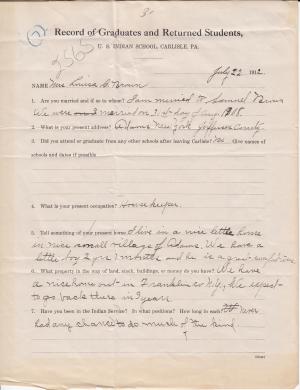 3-
Record of Graduates and Returned Students,
U. S. INDIAN SCHOOL, CARLISLE, PA.
5565
July 22 1912.
NAME Mrs Louisa C. Brown
1. Are you married and if so to whom? I am married to Samuel Brown
We were married on 3 day of Aug. 1908.
2. What is your present address? Adams New York Jefferson County
3. Did you attend or graduate from any other schools after leaving Carlisle? no Give names of
schools and dates if possible
4. What is your present occupation? Housekeeper.
5. Tell something of your present home I live in a nice little home
in nice small village of Adams. We have a
little boy 2 yrs 7 months and he is a
6. What property in the way of land, stock, buildings, or money do you have? We have
a nice home out in Franklin Co N.Y., We expect
to go back there in years
7. Have you been in the Indian Service? In what positions? How long in each? never
had any chance to do much of the kind.